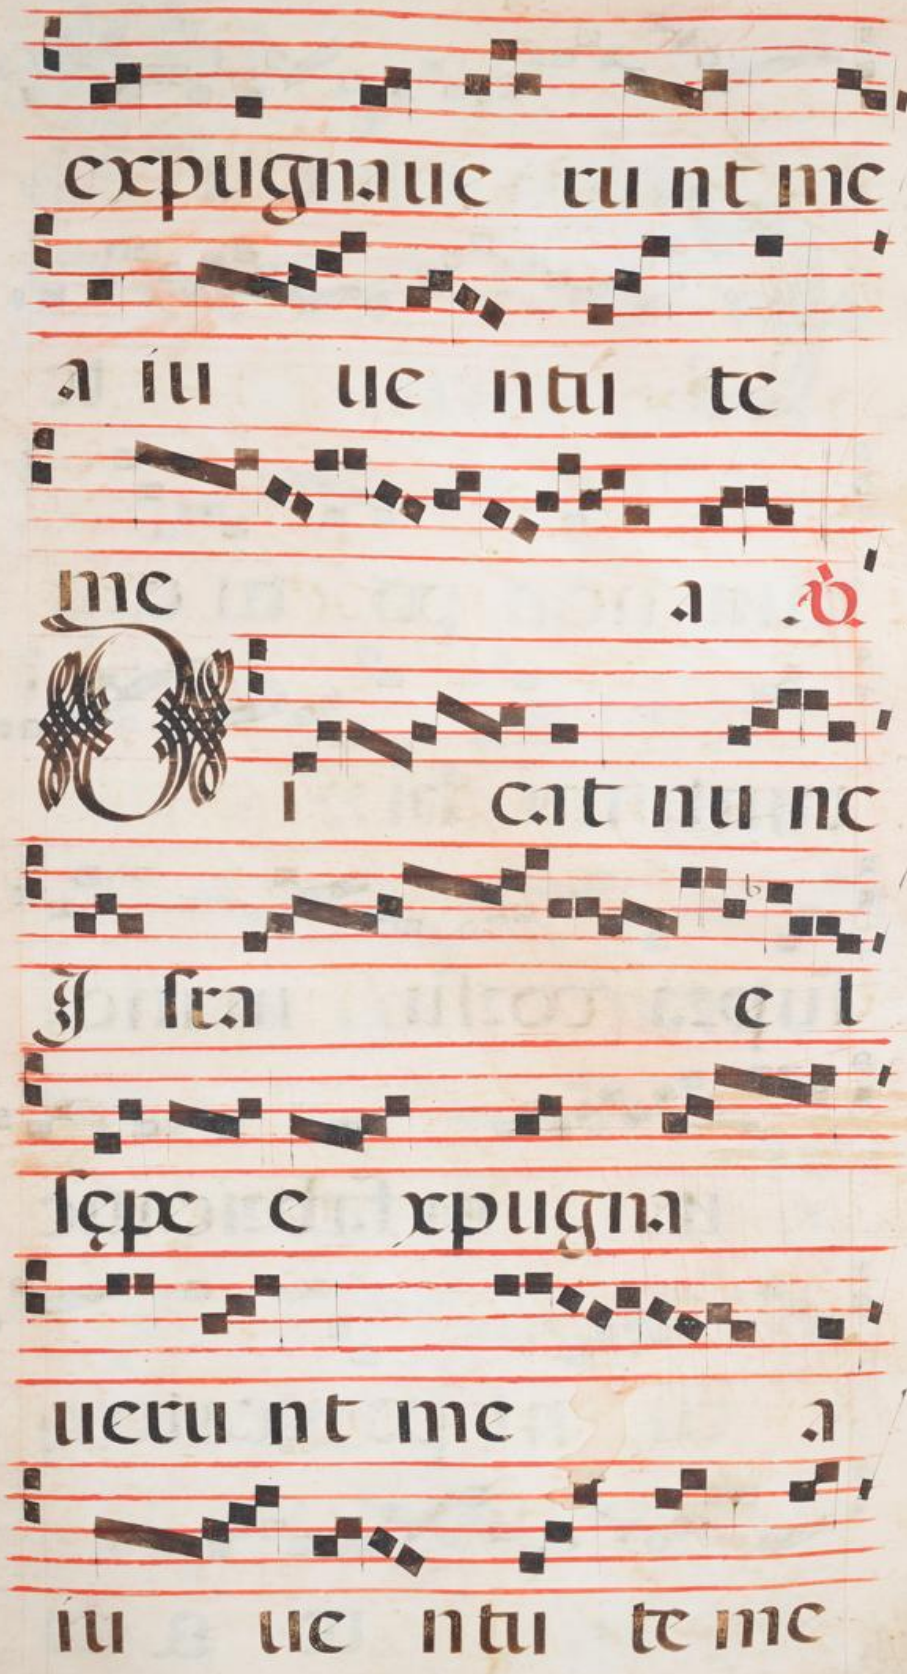 expugnaue ru nt me
a iu ue ntu te
me a . V.
D i cat nu nc
I sra e l
sępe e xpugna
ueru nt me a
iu ue ntu te me